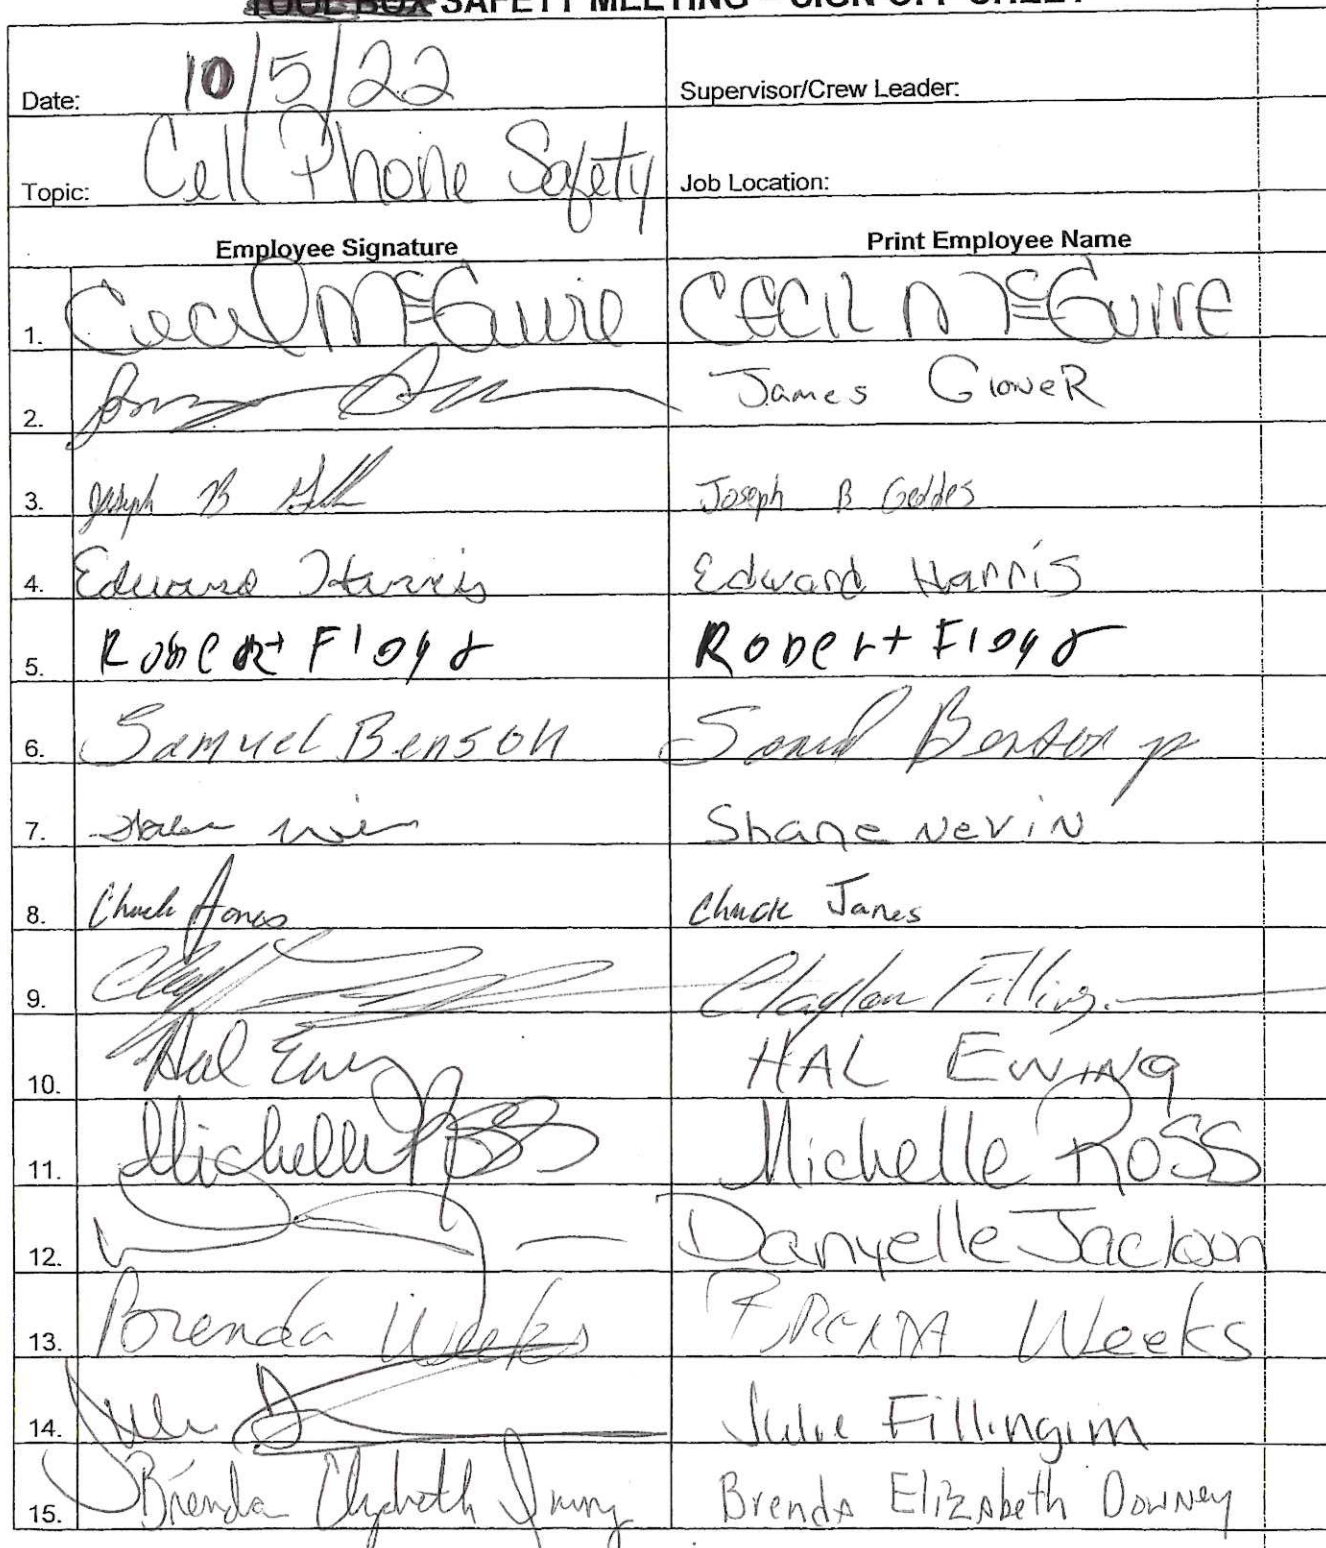 TOOL BOX SAFETY MEETING – SIGN OFF SHEET
Date: 10/5/22 Supervisor/Crew Leader:
Topic: Cell Phone Safety Job Location:
Employee Signature Print Employee Name
1. Cecil McGuire CECIL McGuire
2. James GloveR
3. Joseph B Joseph B Geddes
4. Edward Harris Edward Harris
5. Robert Floyd Robert Floyd
6. Samuel Benson Samuel Benson jr
7. Shane NeViN
8. Chuck Jones Chuck Jones
9. Clayton
10. Hal Ewing HAL EWING
11. Michelle Ross Michelle Ross
12. Danyelle Jackson
13. Brenda Weeks BRENDA Weeks
14. Julie Julie Fillingim
15. Brenda Elizabeth Brenda Elizabeth Downey